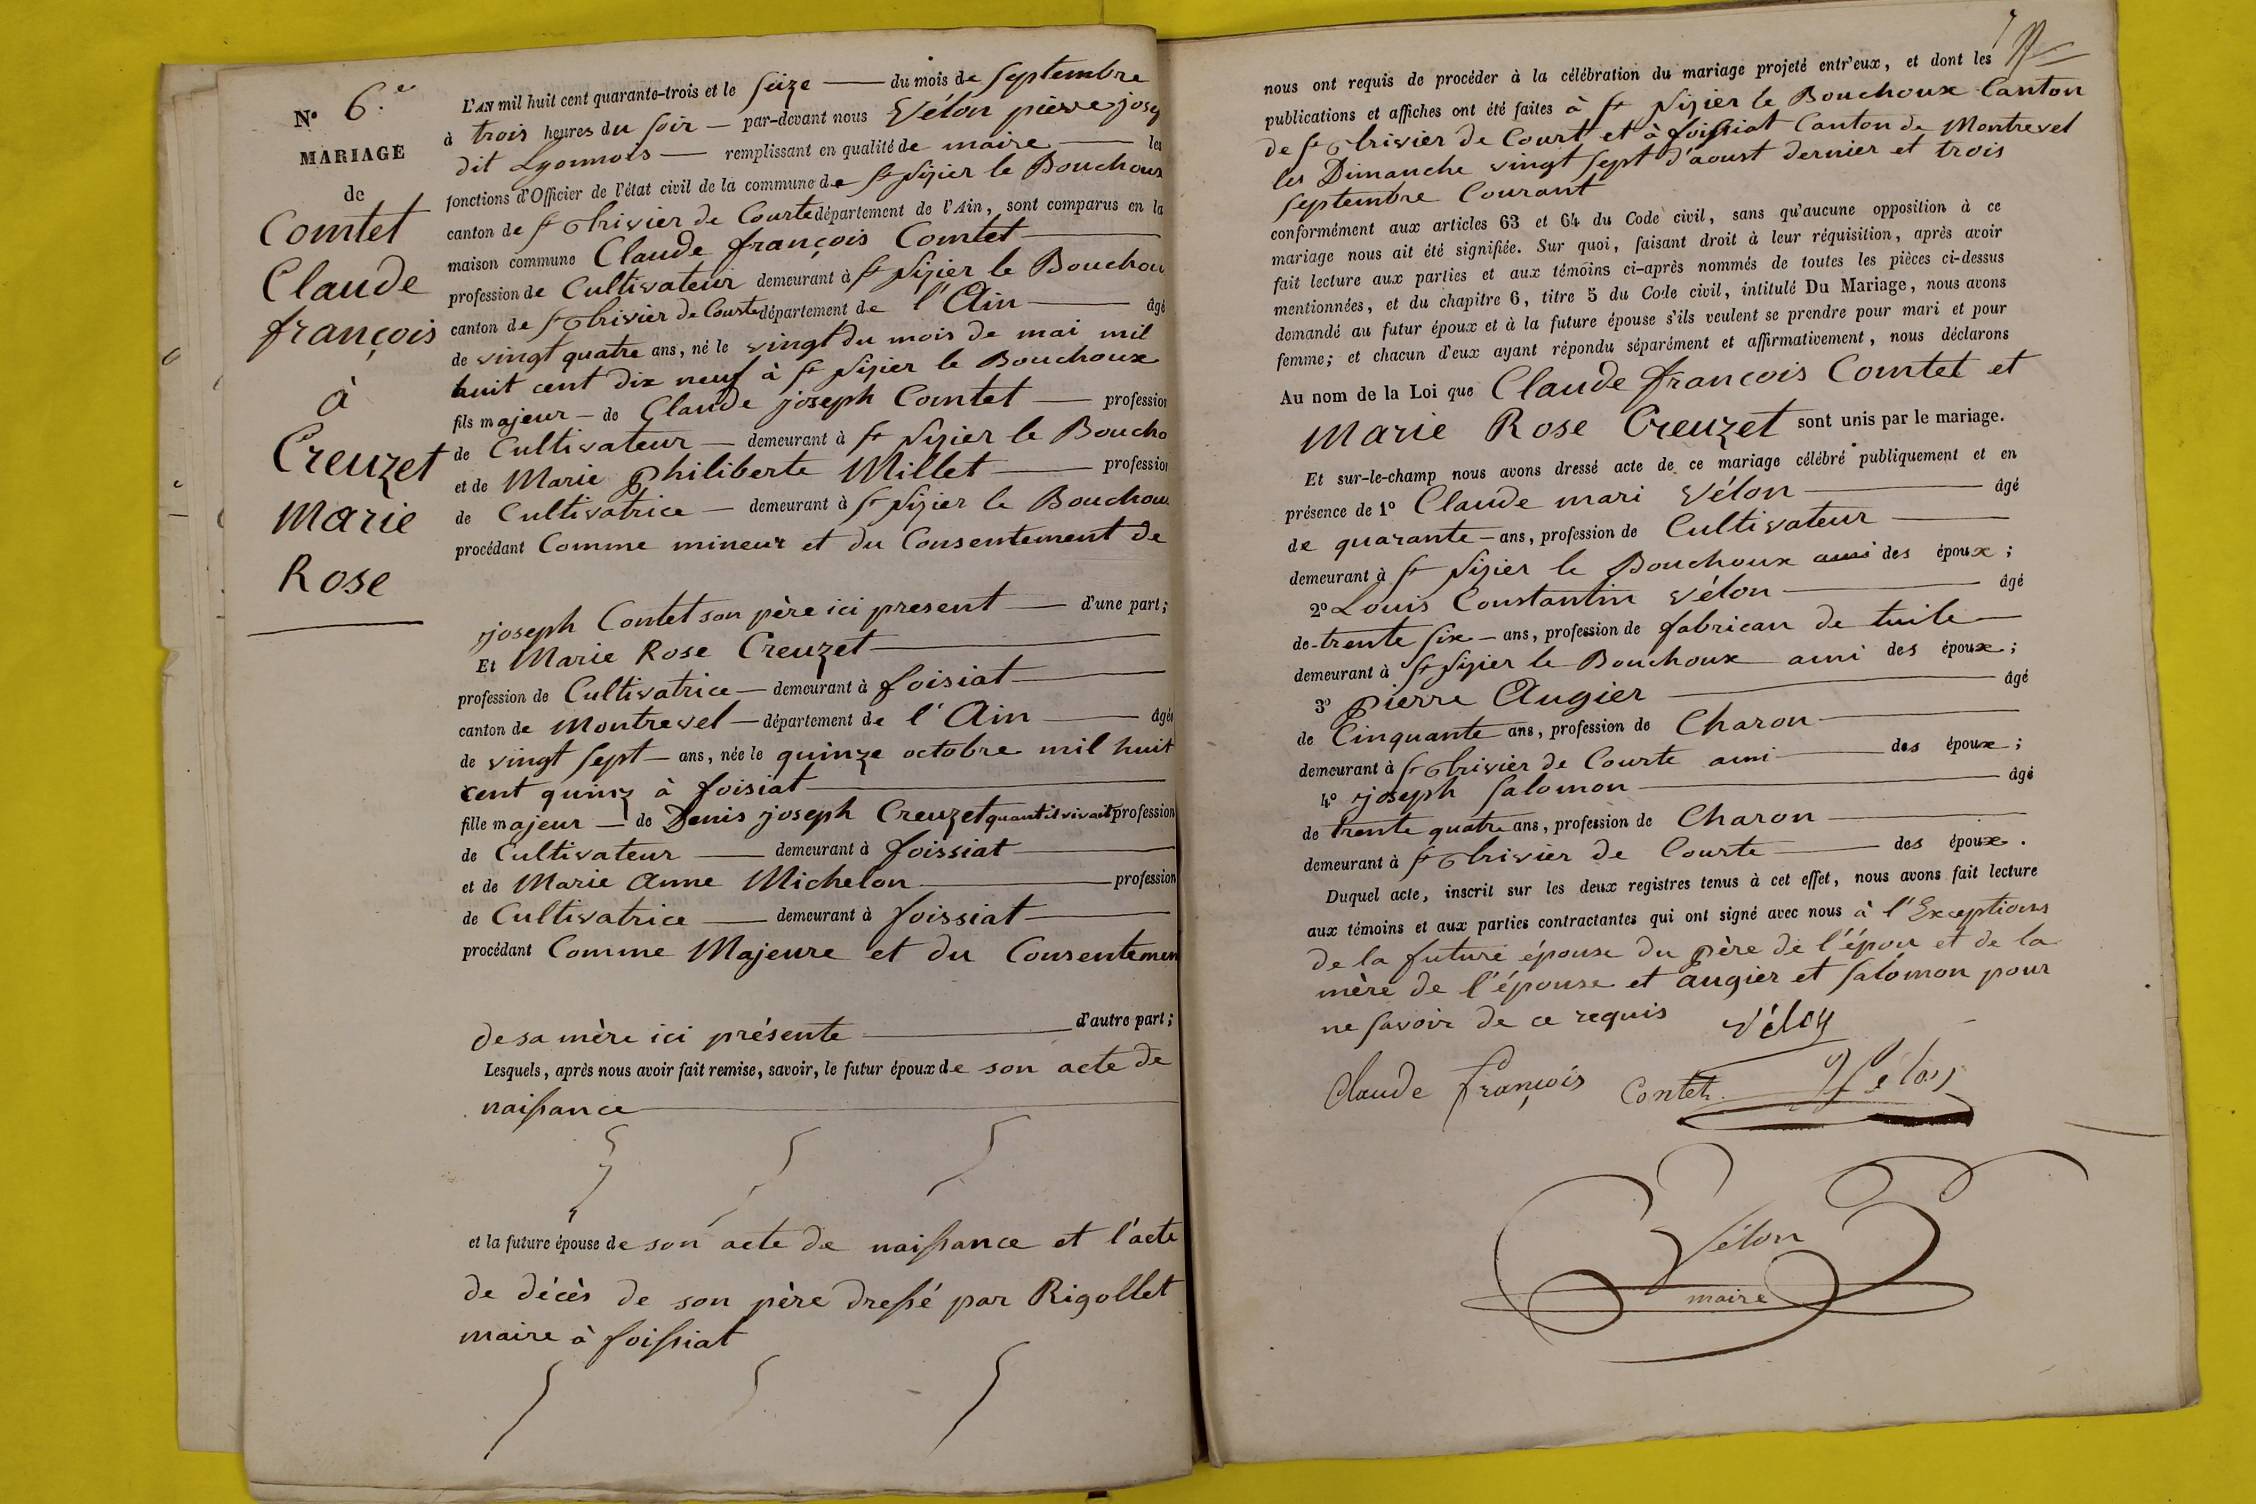 N° 6.e
MARIAGE
de
Comtet
Claude
françois
à
Creuzet
Marie
Rose
L'AN mil huit cent quarante-trois et le seize — du mois de septembre
à trois heures du soir — par-devant nous Vélon pierre josep
dit Lyonnois — remplissant en qualité de maire — les
fonctions d'Officier de l'état civil de la commune de St Nizier le Bouchoux
canton de St Trivier de Courte département de l'Ain, sont comparus en la
maison commune Claude françois Comtet
profession de Cultivateur demeurant à St Nizier le Bouchou
canton de St Trivier de Courte département de l'Ain — âgé
de vingt quatre ans, né le vingt du mois de mai mil
huit cent dix neuf à St Nizier le Bouchoux
fils majeur — de Claude joseph Comtet — profession
de Cultivateur — demeurant à St Nizier le Boucho
et de Marie Philiberte Millet — profession
de Cultivatrice — demeurant à St Nizier le Bouchou
procédant Comme mineur et du Consentement de
joseph Comtet son père ici present — d'une part;
Et Marie Rose Creuzet
profession de Cultivatrice — demeurant à foisiat
canton de Montrevel — département de l'Ain — âgée
de vingt sept — ans, née le quinze octobre mil huit
cent quinz à foisiat
fille majeur — de Denis joseph Creuzet quant il vivait profession
de Cultivateur — demeurant à foissiat
et de Marie Anne Michelon — profession
de Cultivatrice — demeurant à foissiat
procédant Comme Majeure et du Consentemen
de sa mère ici présente — d'autre part;
Lesquels, après nous avoir fait remise, savoir, le futur époux de son acte de
naissance
et la future épouse de son acte de naissance et l'acte
de décès de son père dressé par Rigollet
maire à foissiat
nous ont requis de procéder à la célébration du mariage projeté entr'eux, et dont les
publications et affiches ont été faites à St Nizier le Bouchoux Canton
de St Trivier de Court et à foissiat Canton de Montrevel
les Dimanche vingt sept d'aoust dernier et trois
septembre Courant
conformément aux articles 63 et 64 du Code civil, sans qu'aucune opposition à ce
mariage nous ait été signifiée. Sur quoi, faisant droit à leur réquisition, après avoir
fait lecture aux parties et aux témoins ci-après nommés de toutes les pièces ci-dessus
mentionnées, et du chapitre 6, titre 5 du Code civil, intitulé Du Mariage, nous avons
demandé au futur époux et à la future épouse s'ils veulent se prendre pour mari et pour
femme; et chacun d'eux ayant répondu séparément et affirmativement, nous déclarons
Au nom de la Loi que Claude françois Comtet et
Marie Rose Creuzet sont unis par le mariage.
Et sur-le-champ nous avons dressé acte de ce mariage célébré publiquement et en
présence de 1° Claude mari Vélon — âgé
de quarante — ans, profession de Cultivateur
demeurant à St Nizier le Bouchoux ami des époux;
2° Louis Constantin Vélon — âgé
de trente six — ans, profession de fabrican de tuile
demeurant à St Nizier le Bouchoux ami des époux;
3° pierre Augier — âgé
de Cinquante ans, profession de Charon
demeurant à St Trivier de Courte ami — des époux;
4° joseph Salomon — âgé
de trente quatre ans, profession de Charon
demeurant à St Trivier de Courte — des époux.
Duquel acte, inscrit sur les deux registres tenus à cet effet, nous avons fait lecture
aux témoins et aux parties contractantes qui ont signé avec nous à l'Exceptions
de la future épouse du père de l'épou et de la
mère de l'épouse et Augier et Salomon pour
ne savoir de ce requis
Claude François Contet
Vélon
maire